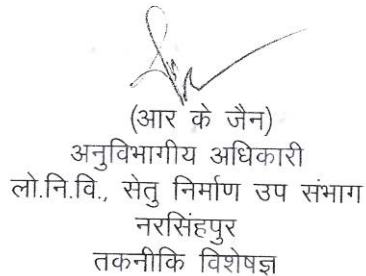 (आर के जैन)
अनुविभागीय अधिकारी
लो.नि.वि., सेतु निर्माण उप संभाग
नरसिंहपुर
तकनीकि विशेषज्ञ